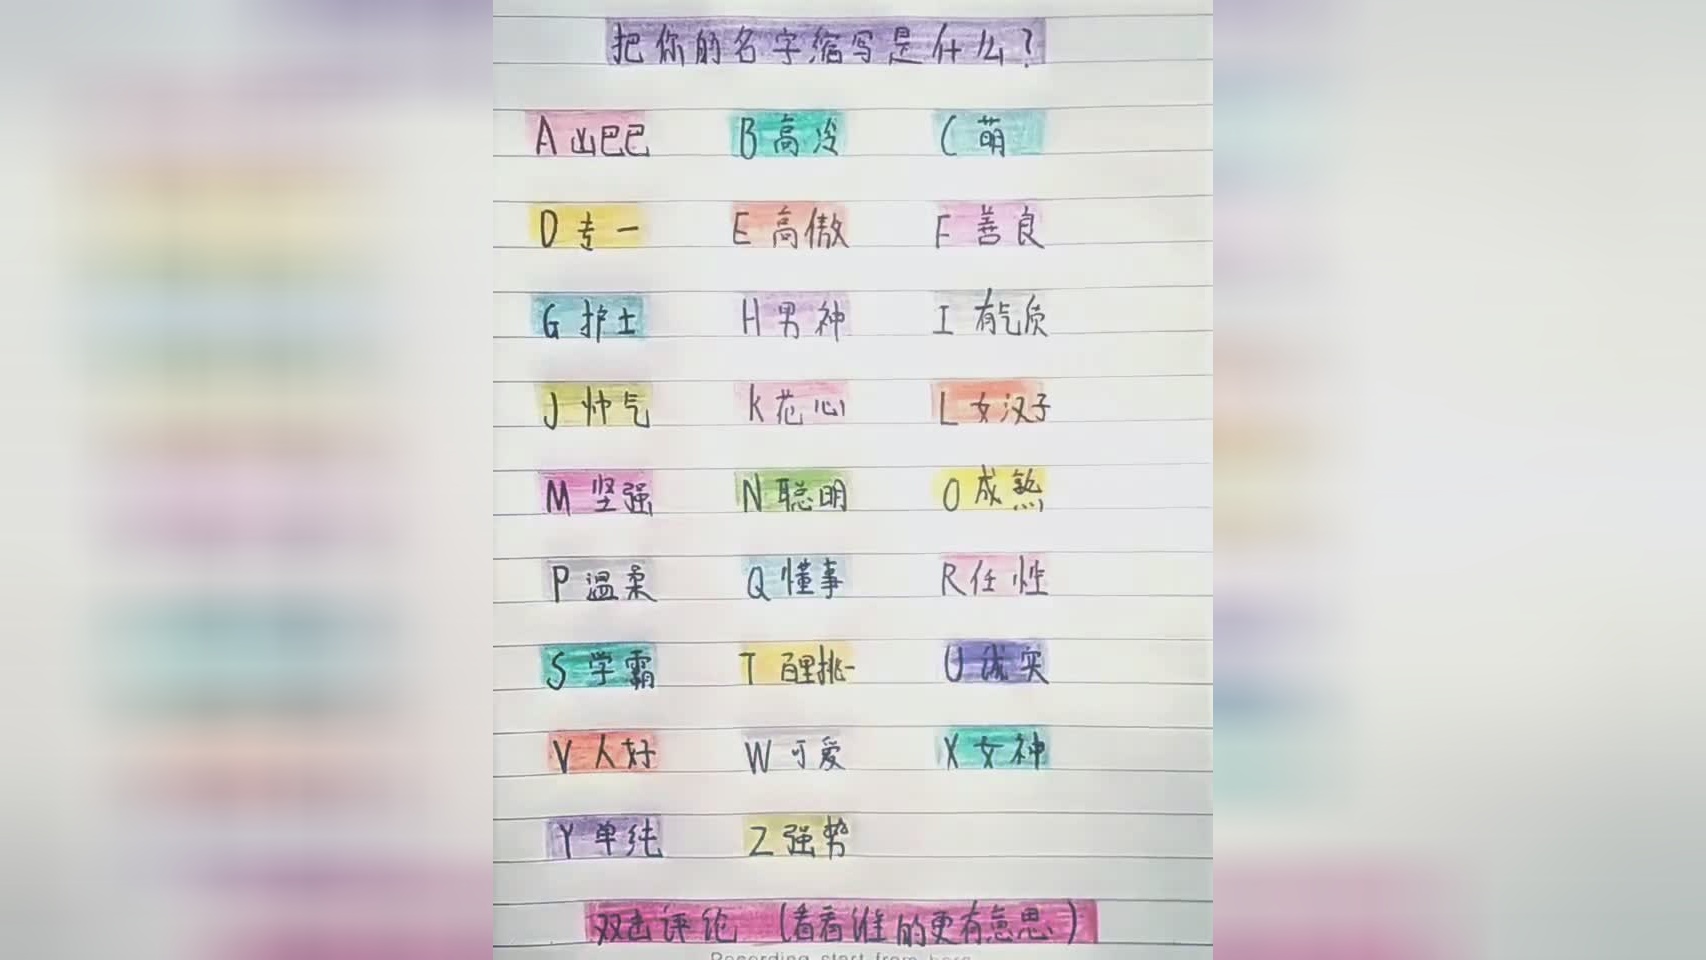 把你的名字缩写是什么?
A 凶巴巴 B 高冷 C 萌
D 专一 E 高傲 F 善良
G 护士 H 男神 I 有气质
J 帅气 K 花心 L 女汉子
M 坚强 N 聪明 O 成熟
P 温柔 Q 懂事 R 任性
S 学霸 T 百里挑一 U 诚实
V 人好 W 可爱 X 女神
Y 单纯 Z 强势
双击评论 (看看谁的更有意思)
Recording start from here